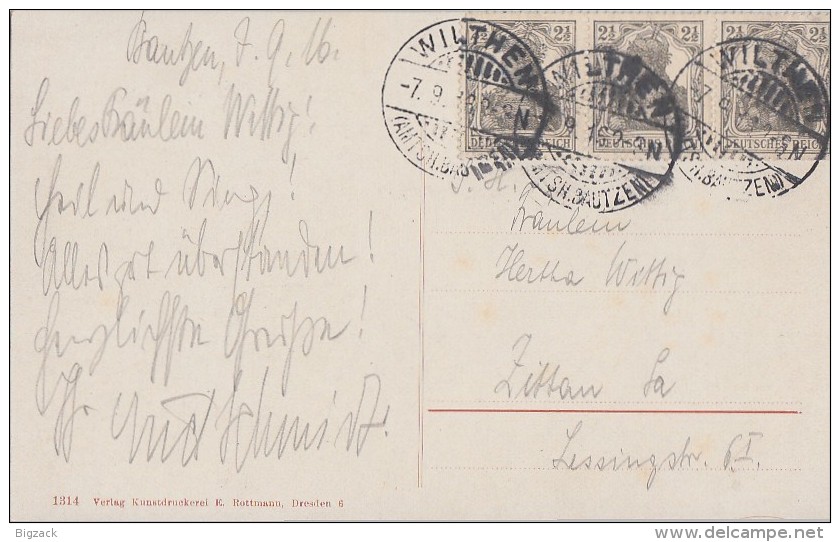 Bautzen, 7. 9. 16.
Liebes Fräulein Wittig!
Heil und Sieg!
Alles gut überstanden!
Herzlichste Grüße!
Ihr
Schmidt.
1314 Verlag Kunstdruckerei E. Rottmann, Dresden 6
2½ 2½ 2½
DEUTSCHES REICH DEUTSCHES REICH DEUTSCHES REICH
WILTHEN
-7. 9.
(AMTSH. BAUTZEN)
WILTHEN
(AMTSH. BAUTZEN)
WILTHEN
(AMTSH. BAUTZEN)
Fräulein
Hertha Wittig
Zittau Sa
Lessingstr. 6 I.
Bigzack
www.delcampe.net